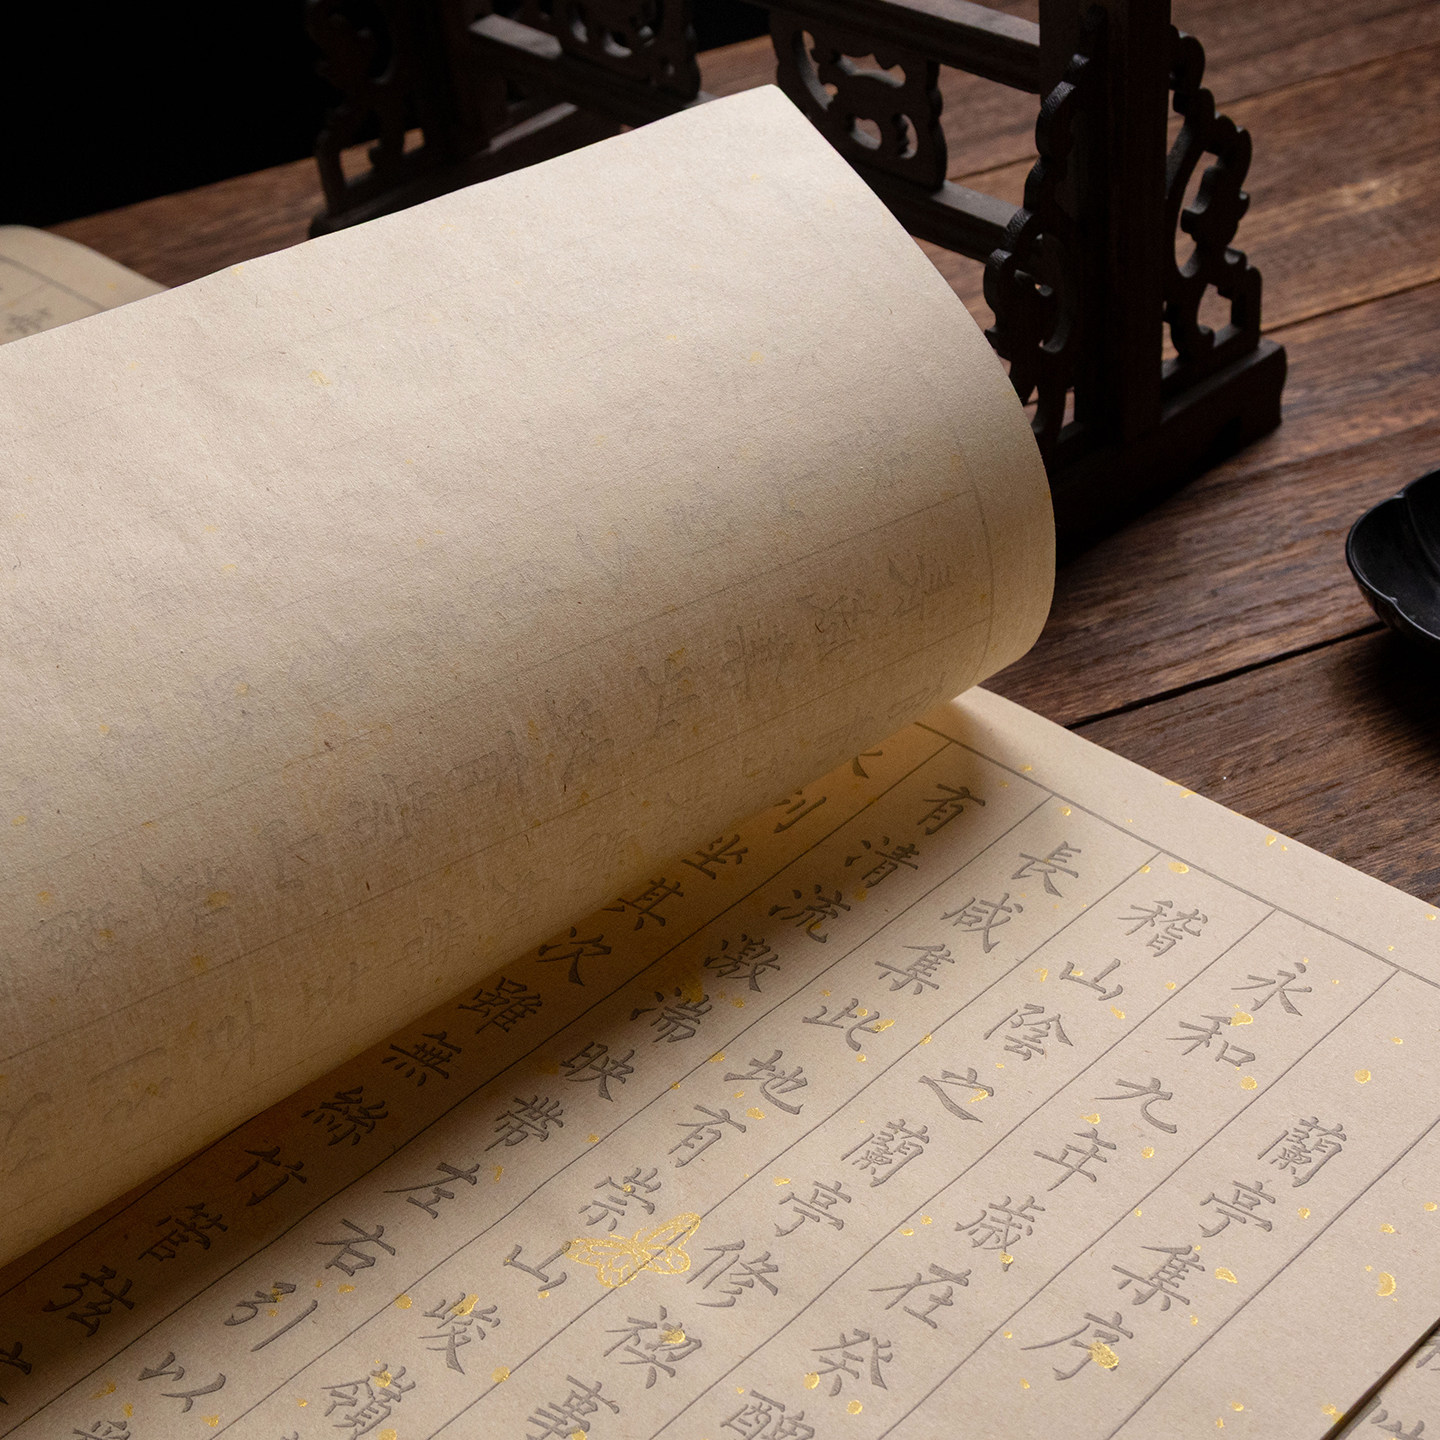 蘭亭集序
永和九年歲在癸醜
稽山陰之蘭亭修禊事
長咸集此地有崇山峻嶺
有清流激湍映帶左右引以
列坐其次雖無絲竹管弦